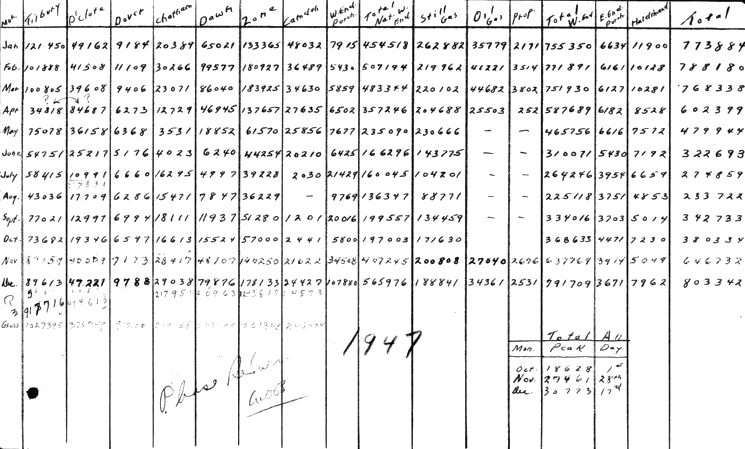 Mo. Tilbury D'Clute Dover Chatham Dawn Zone Camden W.End Purch. Total Nat. W. End Still Gas Oil Gas Prop. Total W. End E.End Purch. Haldimand Total
Jan 121450 49162 9184 20384 65021 133365 48032 7915 454518 262882 35779 2171 755350 6634 11900 773884
Feb. 101888 41508 11109 30266 99577 180927 36489 5430 507194 219962 41221 3514 771891 6161 10128 788180
Mar 100805 39608 9406 23071 86040 183925 34630 5859 483344 220102 44682 3802 751930 6127 10281 768338
? ?
Apr 34318 84687 6273 12729 46945 137657 27635 6502 357246 204688 25503 252 587689 6182 8528 602399
May 75078 36158 6368 3531 18852 61570 25856 7677 235090 230666 - - 465756 6616 7572 479944
June 54751 25217 5176 4023 6240 44254 20210 6425 166296 143775 - - 310071 5430 7192 322693
July 58415 10991 6660 16295 4997 39228 2030 21429 160045 104201 - - 264246 3954 6659 274859
Aug. 43036 17709 6286 15471 7847 36229 - 9769 136347 88771 - - 225118 3751 4853 233722
Sept. 77021 12997 6994 18111 11937 51280 1201 20016 199557 134459 - - 334016 3703 5014 342733
Oct. 73682 19346 6597 16613 15524 57000 2441 5800 197003 171630 368633 4471 7230 380334
Nov 28417 48107 140250 21622 34508 407245 200808 27040 2676 637769 3914 5049 646732
Dec 89613 47,221 9788 29038 79876 178133 24427 107880 565976 188841 34361 2531 791709 3671 7962 803342
Gross
1947
Please Return
Total All
Mon. Peak Day
Oct. 18628 1st
Nov. 27461 28th
Dec. 30773 17th